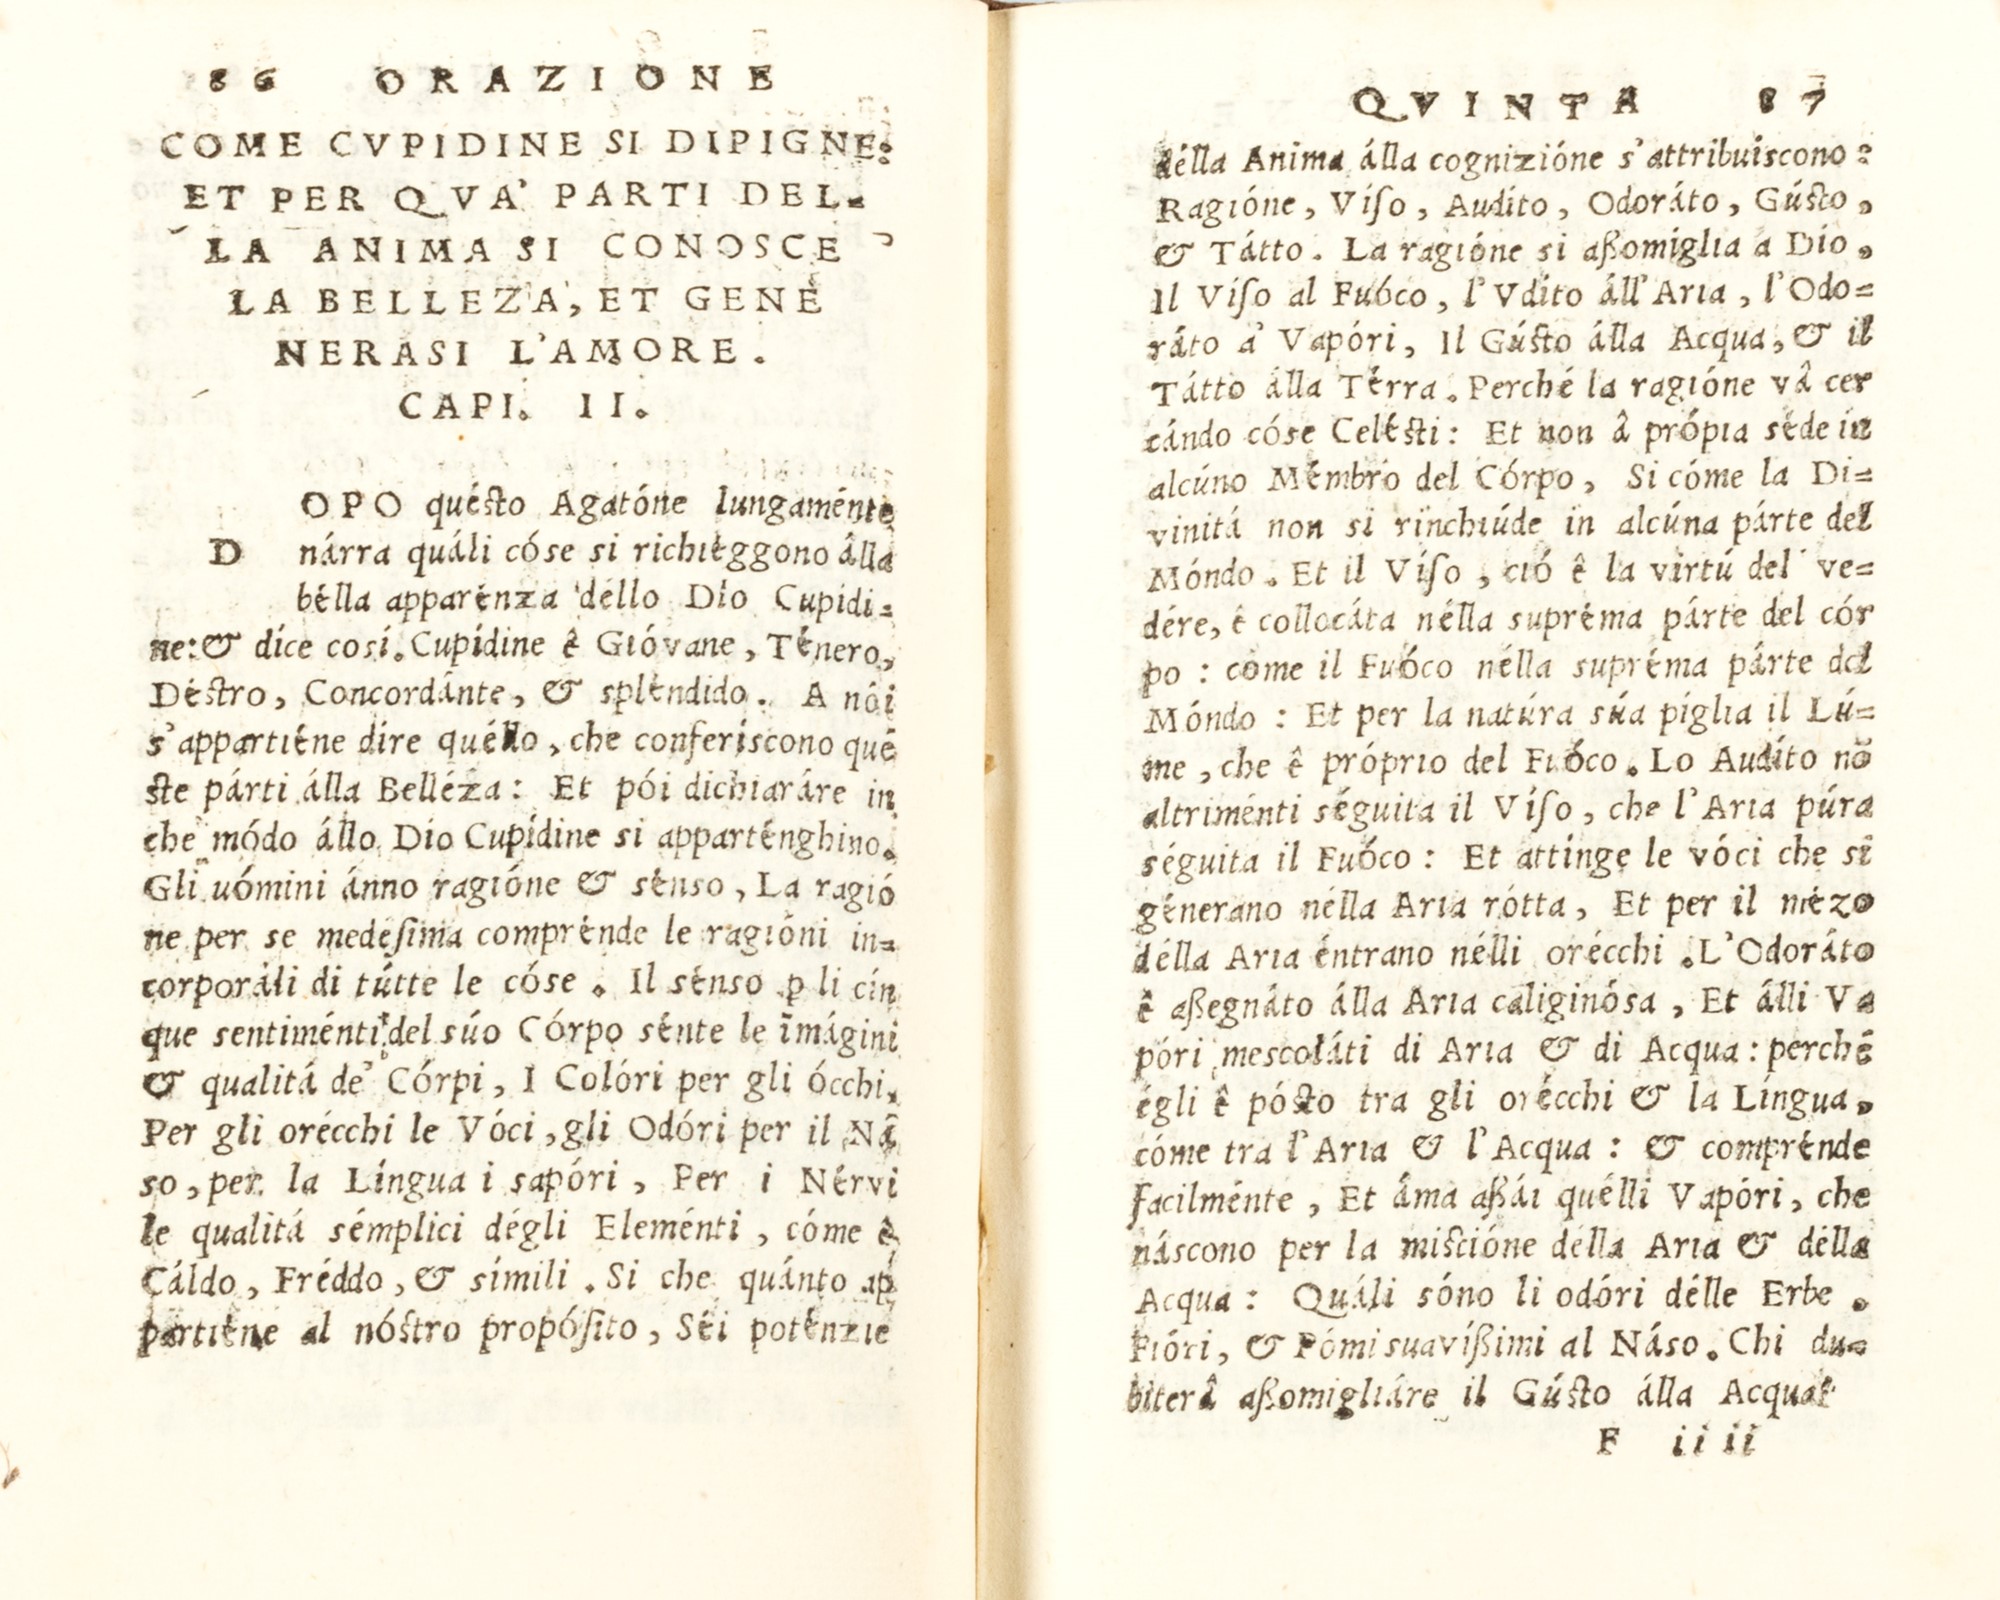 86 ORAZIONE
COME CVPIDINE SI DIPIGNE:
ET PER QVA' PARTI DEL-
LA ANIMA SI CONOSCE
LA BELLEZA, ET GENE
NERASI L'AMORE.
CAPI. II.
OPO quésto Agatóne lungaménte
D nárra quáli cóse si richiéggono âlla
bélla apparénza déllo Dío Cupidi=
ne: & díce cosí. Cupídine ê Gióvane, Ténero,
Déstro, Concordánte, & spléndido. A nói
s'appartiéne dire quéllo, che conferíscono qué
ste párti álla Belléza: Et pói dichiaráre in
che módo állo Dio Cupídine si apparténghino.
Gli uómini ánno ragióne & sénso, La ragió
ne per se medesima comprénde le ragióni in=
corporáli di tútte le cóse. Il sénso ꝑ li cín
que sentiménti del súo Córpo sénte le imágini
& qualitá de' Córpi, I Colóri per gli ócchi,
Per gli orécchi le Vóci, gli Odóri per il Ná
so, per la Língua i sapóri, Per i Nérvi
le qualitá sémplici dégli Eleménti, cóme ê
Cáldo, Fréddo, & símili. Si che quánto ap
partiéne al nóstro propósito, Séi poténzie
QVINTA 87
délla Anima álla cognizióne s'attribuiscono:
Ragióne, Víso, Audito, Odoráto, Gústo,
& Tátto. La ragióne si aßomiglia a Dío,
Il Víso al Fuóco, l'Vdito áll'Aria, l'Odo=
ráto a' Vapóri, Il Gústo álla Acqua, & il
Tátto álla Térra. Perché la ragióne vâ cer
cándo cóse Celésti: Et non â própia séde in
alcúno Mémbro del Córpo, Si cóme la Di=
vinitá non si rinchiúde in alcúna párte del
Móndo. Et il Víso, ció ê la virtú del ve=
dére, ê collocáta nélla supréma párte del cór
po: come il Fuóco nélla supréma párte del
Móndo: Et per la natúra súa piglia il Lú=
me, che ê próprio del Fuóco. Lo Audíto nõ
altriménti séguita il Víso, che l'Aria púra
séguita il Fuóco: Et attinge le vóci che si
génerano nélla Aria rótta, Et per il mézo
délla Aria éntrano nélli orécchi. L'Odoráto
ê aßegnáto álla Aria caliginósa, Et álli Va
póri mescoláti di Aria & di Acqua: perché
égli ê pósto tra gli orécchi & la Língua,
cóme tra l'Aria & l'Acqua: & comprénde
facilménte, Et áma aßái quélli Vapóri, che
náscono per la miscióne délla Aria & délla
Acqua: Quáli sóno li odóri délle Erbe.
Fióri, & Pómi suavíßimi al Náso. Chi du=
biterâ aßomigliáre il Gústo álla Acqua?
F iiii